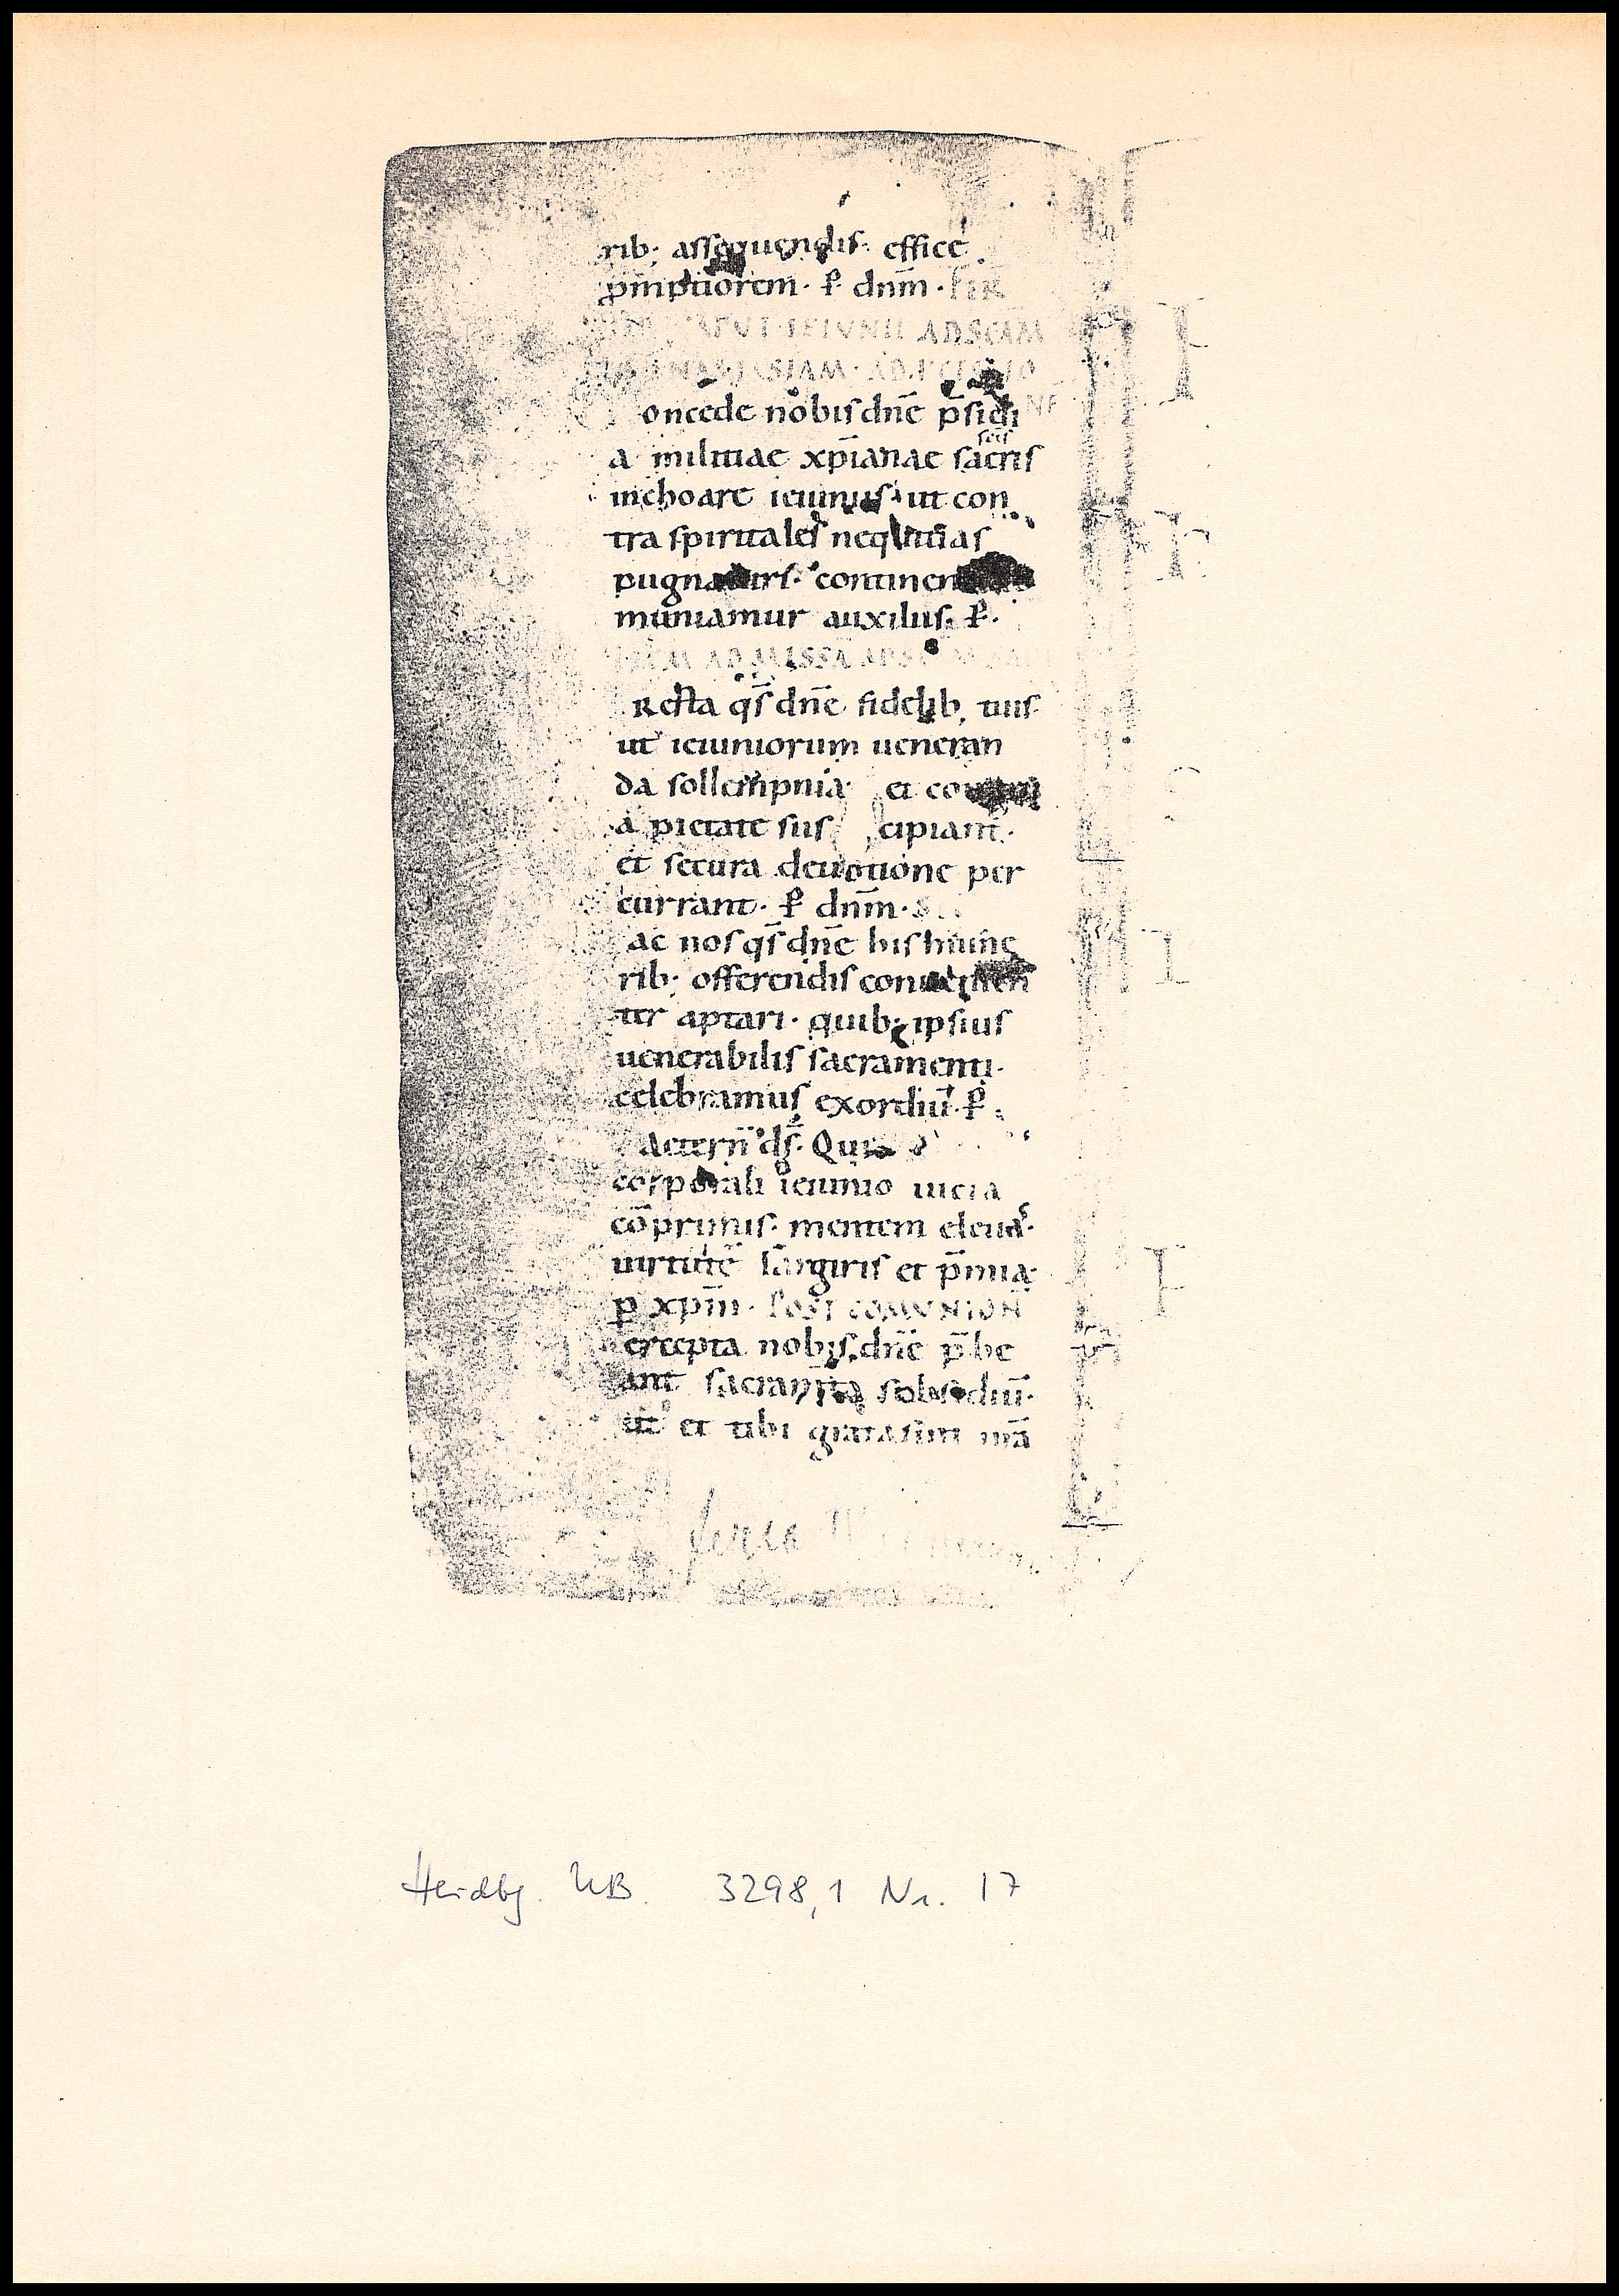 rib; assequendis· effice
p̄mptiorem· ꝑ dnm̄· FER
CAPUT IEIVNII AD SCAM
ANASTASIAM· AD
oncede nobis dnē p̄sidi
scīs
a militiae xp̄ianae sacris
inchoare ieiuniis· ut con
tra spiritales neq̇uitias
pugnaturi· continen
muniamur auxiliis· ꝑ·
AD MISSA AD
Resta q̄s dnē fidelib; tuis
ut ieiuniorum ueneran
da sollempnia et
a pietate sus cipiant·
et secura deuotione per
currant· ꝑ dnm̄·
ac nos q̄s dnē his mune
rib; offerendis conuenien
ter aptari· quib; ipsius
uenerabilis sacramenti·
celebramus exordiū· ꝑ·
Aetern̄ ds̄· Qui
corporali ieiunio uicia
cōprimis· mentem eleuas·
uirtutē largiris et p̄mia·
p xpm̄· POST COMVNION̄
ercepta nobis dnē p̄be
ant sacram̄ta subsidiū·
ut et tibi grata sint n̄ra
feria
Heidbg. UB. 3298,1 Nr. 17